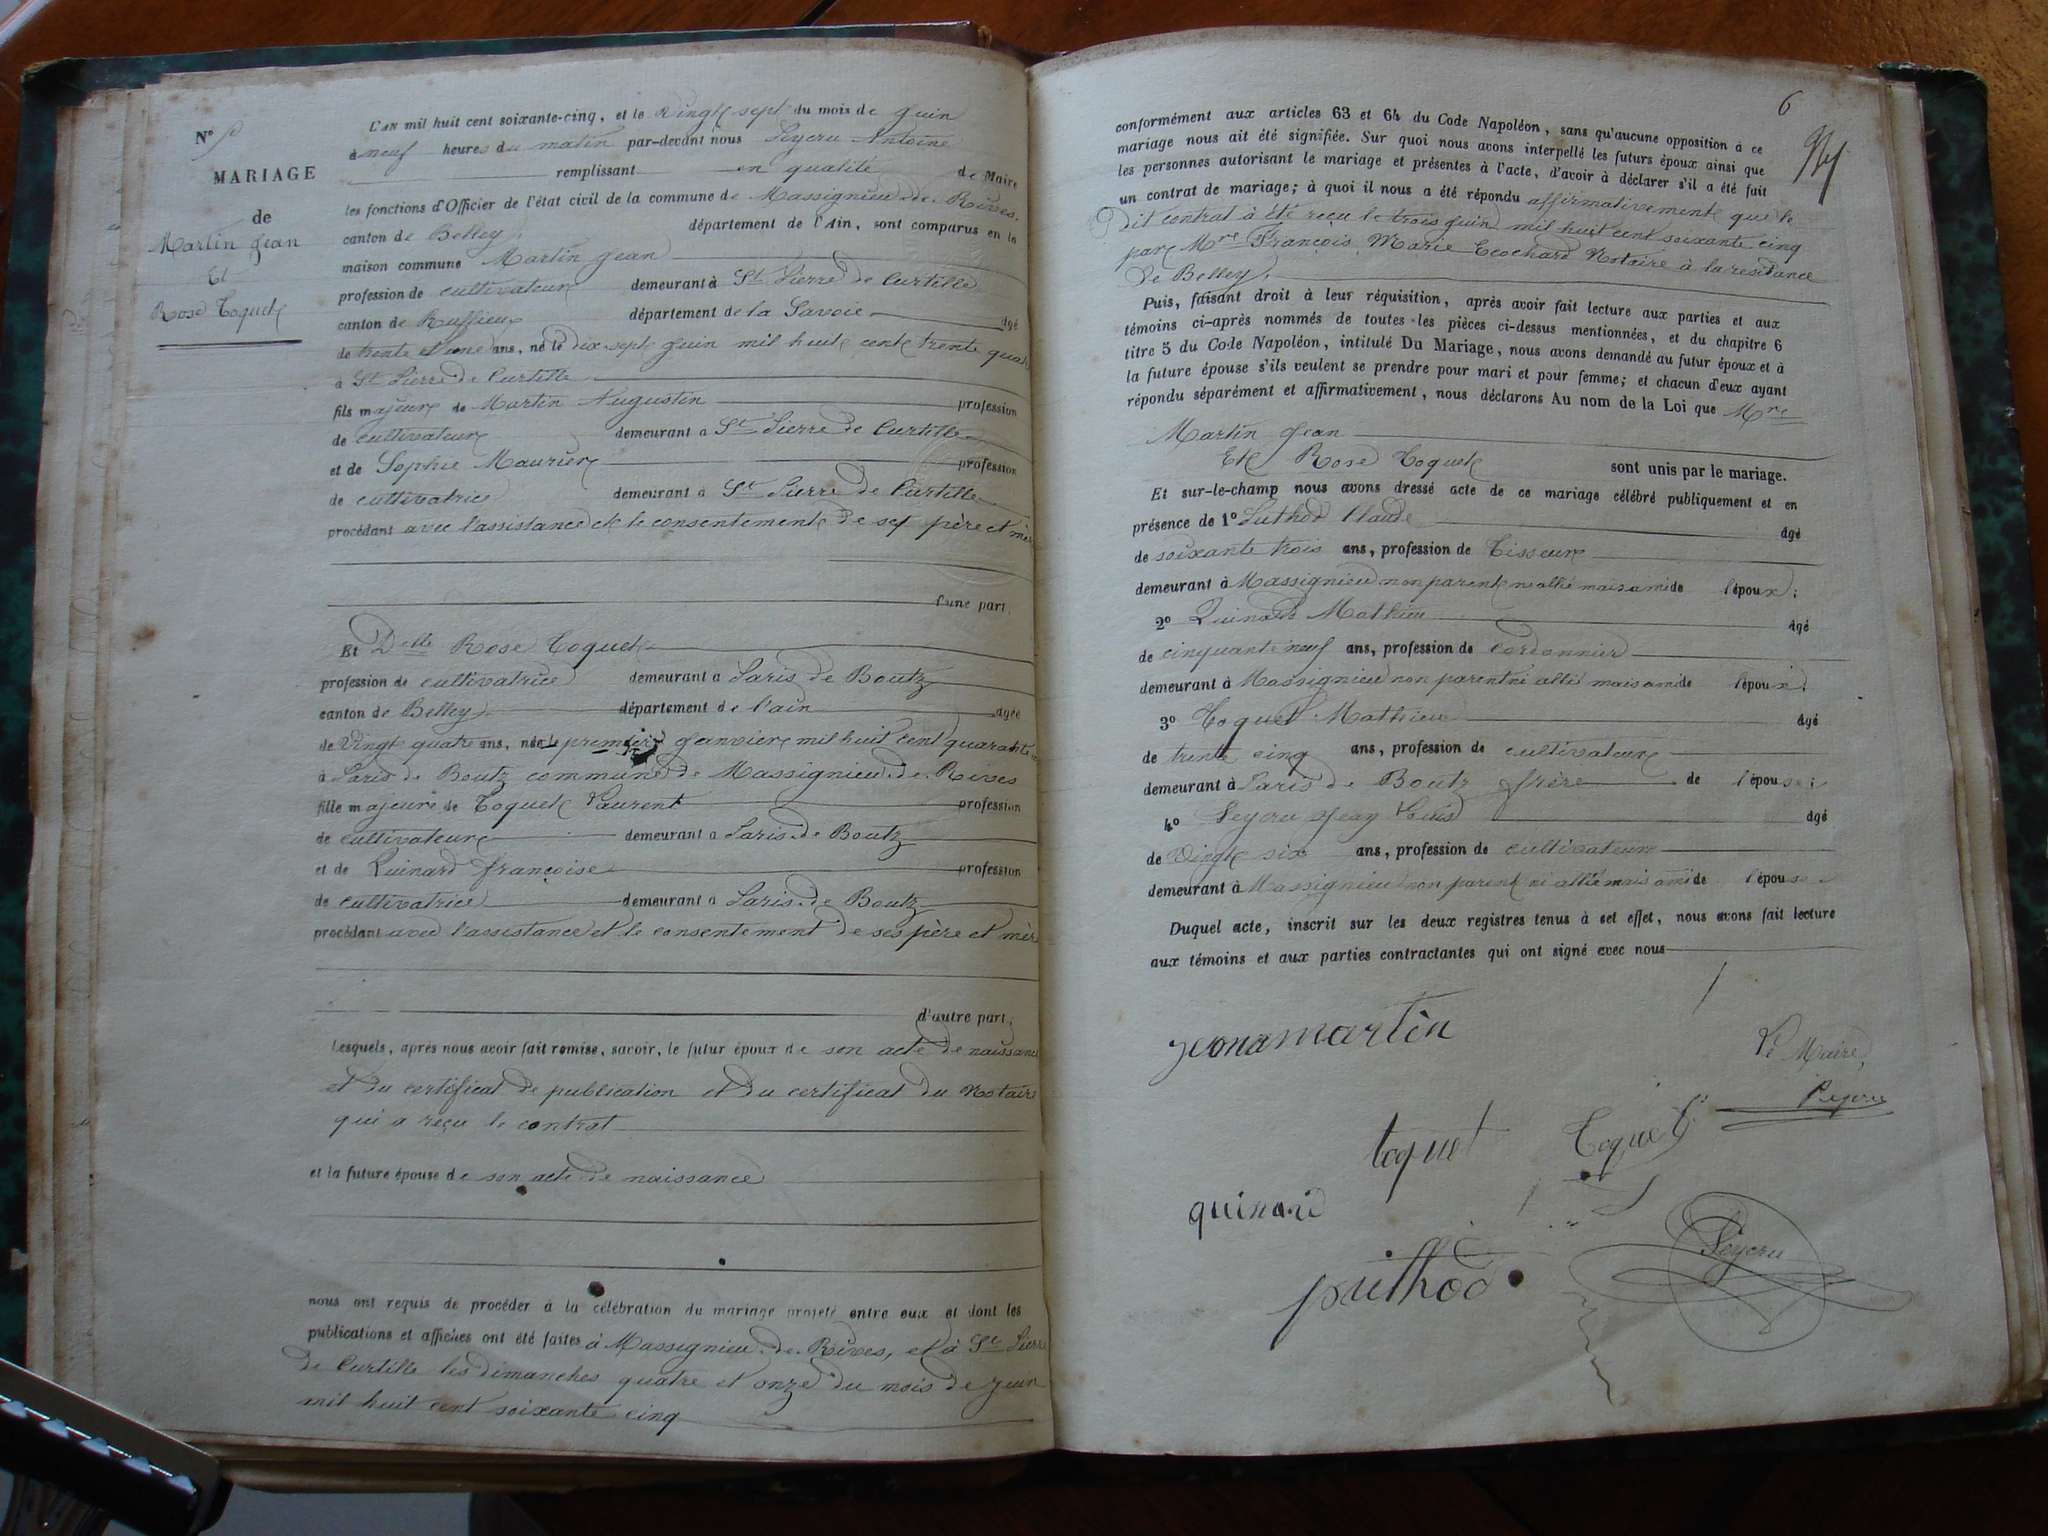 Nº 5
MARIAGE
de
Martin Jean
Et
Rose Toquet
L'AN mil huit cent soixante-cinq, et le Vingt sept du mois de Juin
à neuf heures du matin par-devant nous Peycru Antoine
remplissant en qualité de Maire
les fonctions d'Officier de l'état civil de la commune de Massignieu de Rives.
canton de Belley, département de l'Ain, sont comparus en la
maison commune Martin Jean
profession de cultivateur demeurant à St Pierre de Curtille
canton de Ruffieux département de la Savoie âgé
de trente et une ans, né le dix-sept Juin mil huit cent trente quatre
à St Pierre de Curtille
fils majeur de Martin Augustin profession
de cultivateur demeurant à St Pierre de Curtille
et de Sophie Maurier profession
de cultivatrice demeurant à St Pierre de Curtille
procédant avec l'assistance et le consentement de ses père et mère
d'une part,
Et Delle Rose Toquet
profession de cultivatrice demeurant à Paris de Boutz
canton de Belley département de l'ain âgée
de Vingt quatre ans, née le premier Janvier mil huit cent quarante
à Paris de Boutz commune de Massignieu de Rives
fille majeure de Toquet Laurent profession
de cultivateur demeurant à Paris de Boutz
et de Quinard françoise profession
de cultivatrice demeurant à Paris de Boutz
procédant avec l'assistance et le consentement de ses père et mère
d'autre part,
Lesquels, après nous avoir fait remise, savoir, le futur époux de son acte de naissance
et du certificat de publication et du certificat du Notaire
qui a reçu le contrat
et la future épouse de son acte de naissance
nous ont requis de procéder à la célébration du mariage projeté entre eux et dont les
publications et affiches ont été faites à Massignieu de Rives, et à St Pierre
de Curtille les dimanches quatre et onze du mois de juin
mil huit cent soixante cinq
6
conformément aux articles 63 et 64 du Code Napoléon, sans qu'aucune opposition à ce
mariage nous ait été signifiée. Sur quoi nous avons interpellé les futurs époux ainsi que
les personnes autorisant le mariage et présentes à l'acte, d'avoir à déclarer s'il a été fait
un contrat de mariage; à quoi il nous a été répondu affirmativement que le
dit contrat à été reçu le trois Juin mil huit cent soixante cinq
par Mre François Marie Trochard Notaire à la residance
de Belley.
Puis, faisant droit à leur réquisition, après avoir fait lecture aux parties et aux
témoins ci-après nommés de toutes les pièces ci-dessus mentionnées, et du chapitre 6
titre 5 du Code Napoléon, intitulé Du Mariage, nous avons demandé au futur époux et à
la future épouse s'ils veulent se prendre pour mari et pour femme; et chacun d'eux ayant
répondu séparément et affirmativement, nous déclarons Au nom de la Loi que Mre
Martin Jean
Et Rose Toquet sont unis par le mariage.
Et sur-le-champ nous avons dressé acte de ce mariage célébré publiquement et en
présence de 1º Puthod Claude âgé
de soixante trois ans, profession de Tisseur
demeurant à Massignieu non parent ni allié mais ami de l'époux;
2º Quinard Mathieu âgé
de cinquante neuf ans, profession de cordonnier
demeurant à Massignieu non parent ni allié mais ami de l'époux;
3º Toquet Mathieu âgé
de trente cinq ans, profession de cultivateur
demeurant à Paris de Boutz frère de l'épouse;
4º Peycru Jean Louis âgé
de Vingt six ans, profession de cultivateur
demeurant à Massignieu non parent ni allié mais ami de l'épouse
Duquel acte, inscrit sur les deux registres tenus à cet effet, nous avons fait lecture
aux témoins et aux parties contractantes qui ont signé avec nous
martin
Le Maire,
Peycru
toquet Toquet
quinard
Peycru
puthod